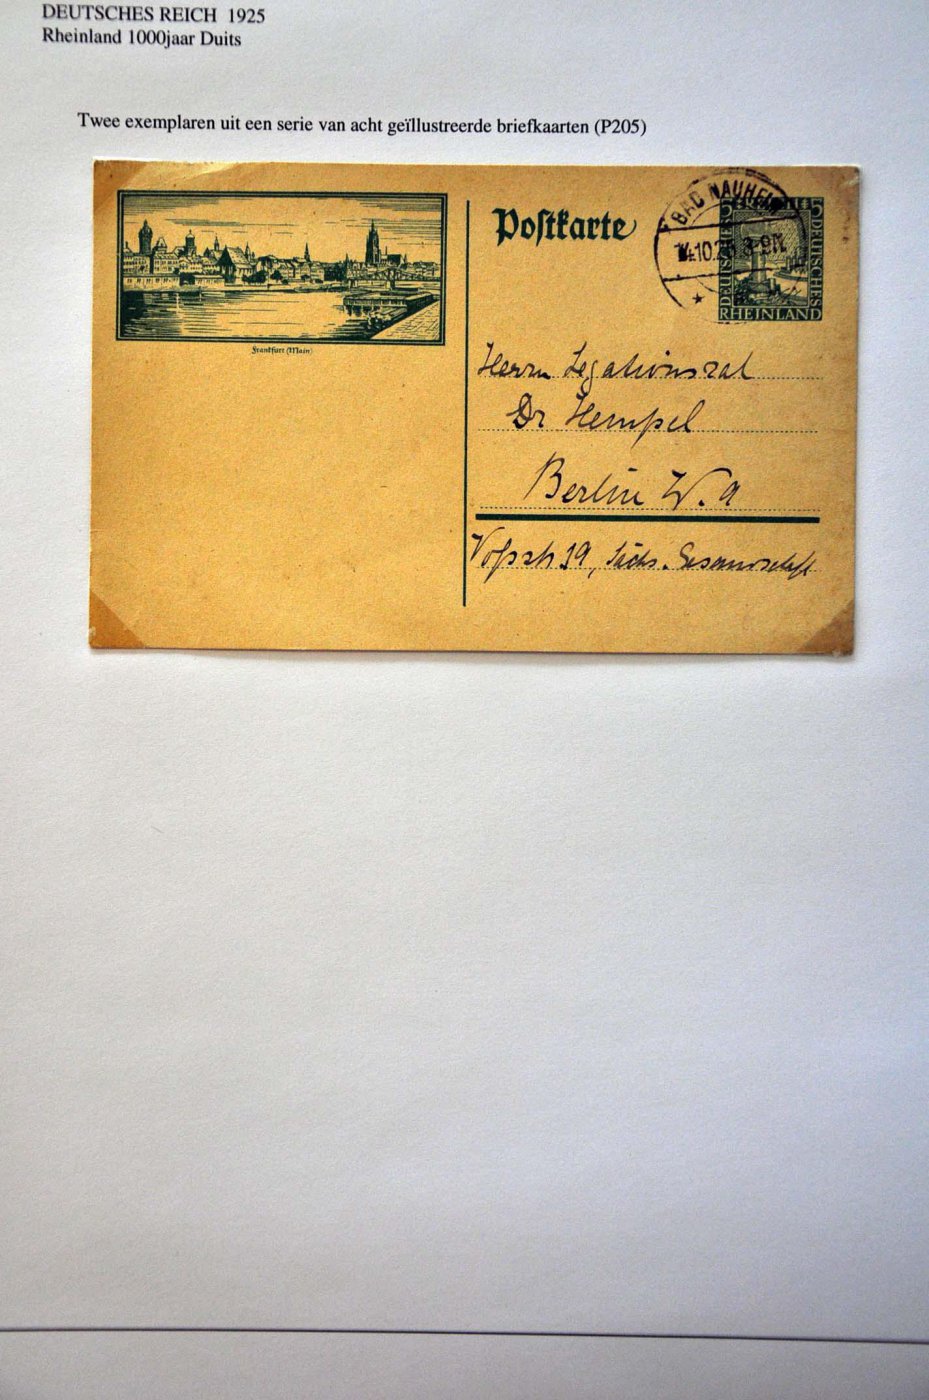 DEUTSCHES REICH 1925
Rheinland 1000jaar Duits
Twee exemplaren uit een serie van acht geïllustreerde briefkaarten (P205)
Poſtkarte
BAD NAUHEIM
5 5
DEUTSCHES
RHEINLAND
Frankfurt (Main)
Herrn Legationsrat
Dr Hempel
Berlin W. 9
Voßstr 19, Sächs. Gesandtschaft